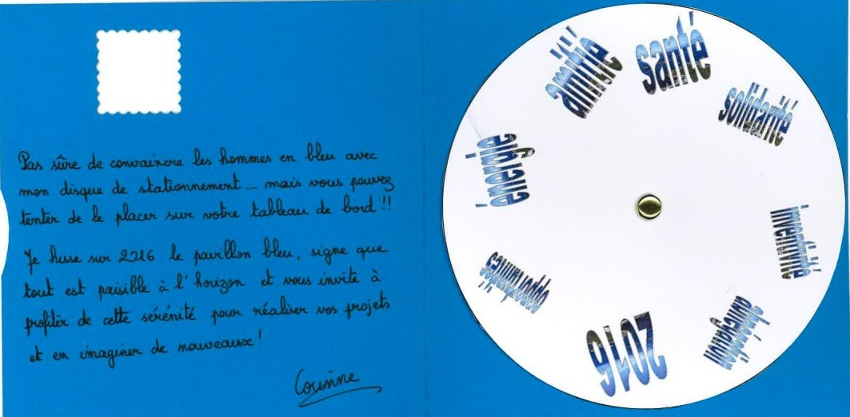 Pas sûre de convaincre les hommes en bleu avec
mon disque de stationnement... mais vous pouvez
tenter de le placer sur votre tableau de bord !!
Je hisse sur 2016 le pavillon bleu, signe que
tout est paisible à l'horizon et vous invite à
profiter de cette sérénité pour réaliser vos projets
et en imaginer de nouveaux !
Corinne
amitié
santé
solidarité
inventivité
2016
opportunités
énergie